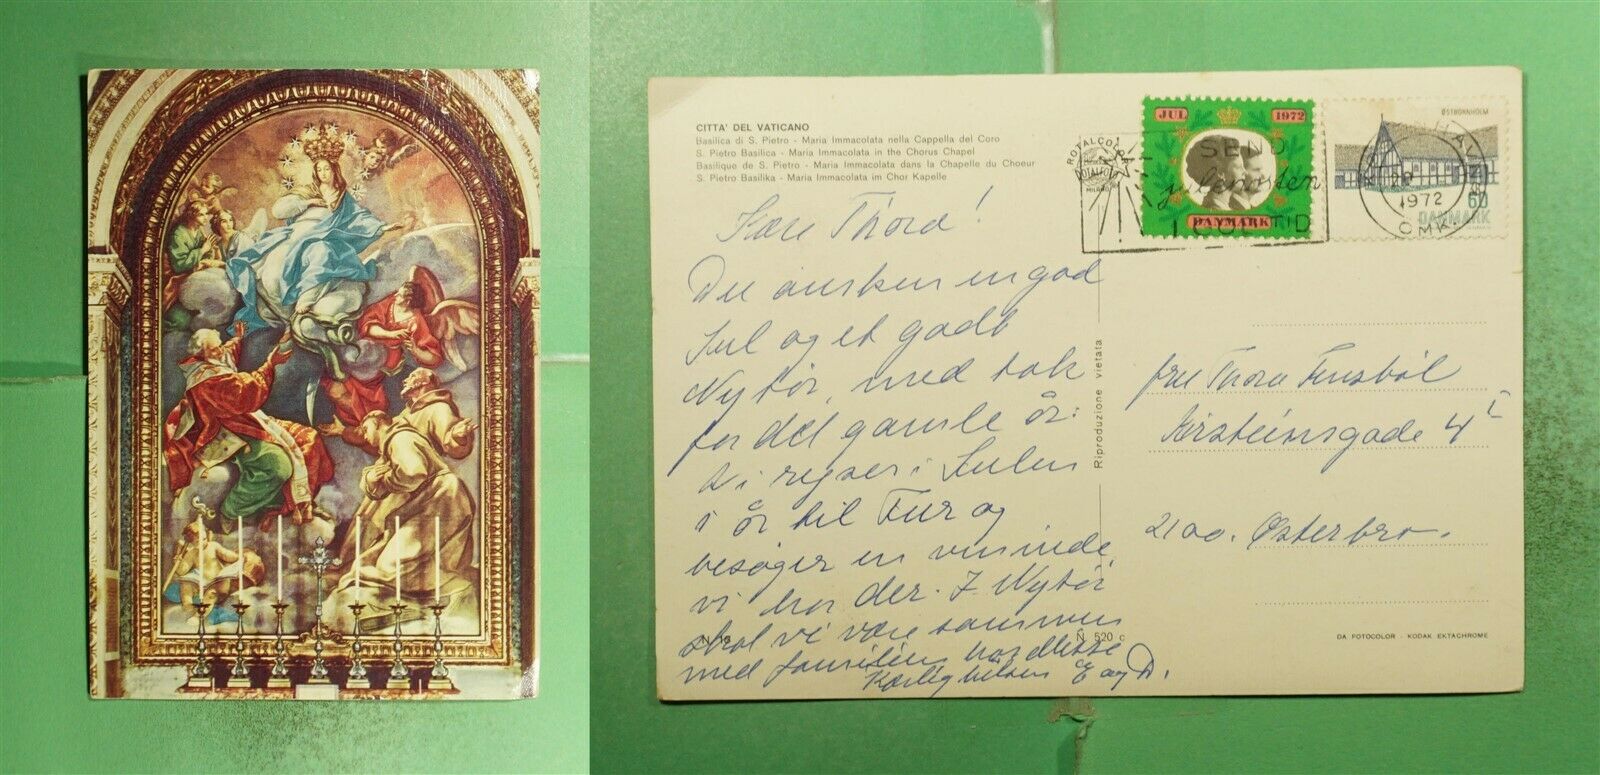 CITTA' DEL VATICANO
Basilica di S. Pietro - Maria Immacolata nella Cappella del Coro
S. Pietro Basilica - Maria Immacolata in the Chorus Chapel
Basilique de S. Pietro - Maria Immacolata dans la Chapelle du Choeur
S. Pietro Basilika - Maria Immacolata im Chor Kapelle
ROYALCOLOR
MILANO
JUL 1972
DANMARK
SEND
julepost en
I TID
ØSTBORNHOLM
60
DANMARK
KØBENHAVN
1972
OMK.
Kære Thora!
Du ønskes en god
Jul og et godt
Nytår, med tak
for det gamle år:
Vi rejser i Julen
i år til Fur og
besøger en veninde
vi har der. I Nytår
skal vi være sammen
med familien hos
Kærlig hilsen E og D.
N 13
N. 520 c
Riproduzione vietata
fru Thora
Kirsteinsgade 4
2100. Østerbro.
DA FOTOCOLOR - KODAK EKTACHROME